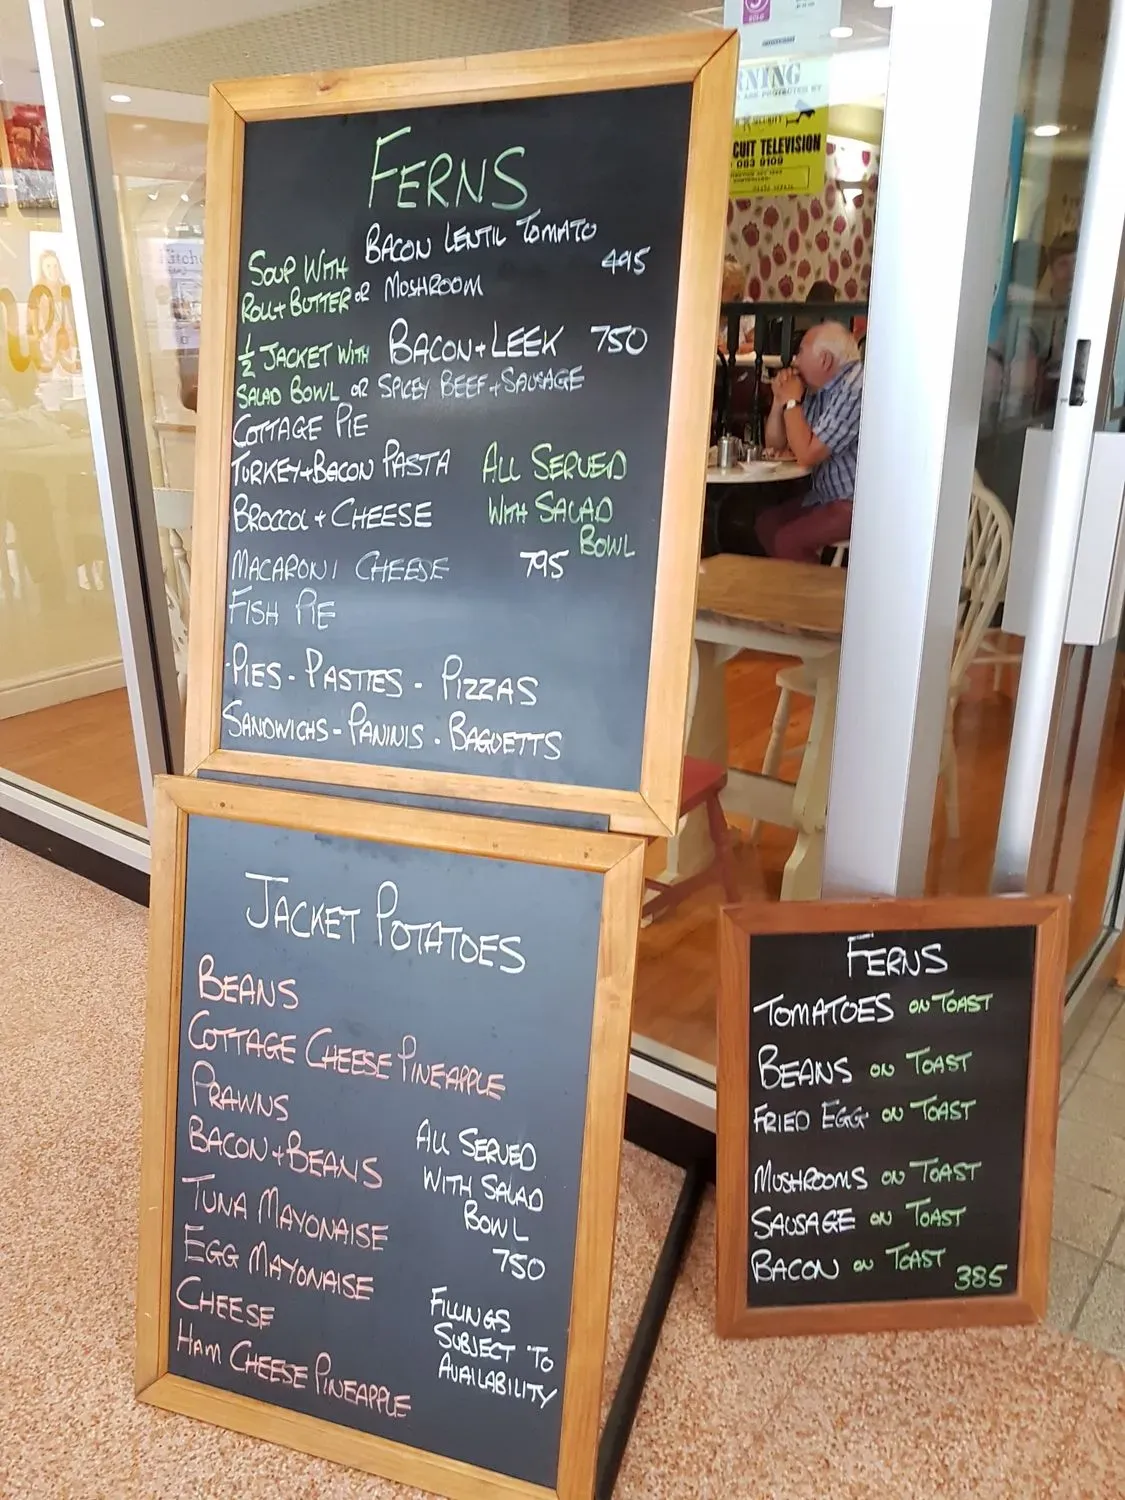 FERNS
SOUP WITH BACON LENTIL TOMATO
ROLL+BUTTER OR MOSHROOM 495
½ JACKET WITH BACON+LEEK 750
SALAD BOWL OR SPICEY BEEF+SAUSAGE
COTTAGE PIE
TURKEY+BACON PASTA
BROCCOL+CHEESE
MACARONI CHEESE
FISH PIE
ALL SERVED
WITH SALAD
BOWL
795
PIES - PASTIES - PIZZAS
SANDWICHS - PANINIS - BAGUETTS
JACKET POTATOES
BEANS
COTTAGE CHEESE PINEAPPLE
PRAWNS
BACON+BEANS
TUNA MAYONAISE
EGG MAYONAISE
CHEESE
HAM CHEESE PINEAPPLE
ALL SERVED
WITH SALAD
BOWL
750
FILLINGS
SUBJECT TO
AVAILABILITY
FERNS
TOMATOES ON TOAST
BEANS ON TOAST
FRIED EGG ON TOAST
MUSHROOMS ON TOAST
SAUSAGE ON TOAST
BACON ON TOAST
385
RNING
ARE PROTECTED BY
CUIT TELEVISION
083 9109
Kitche